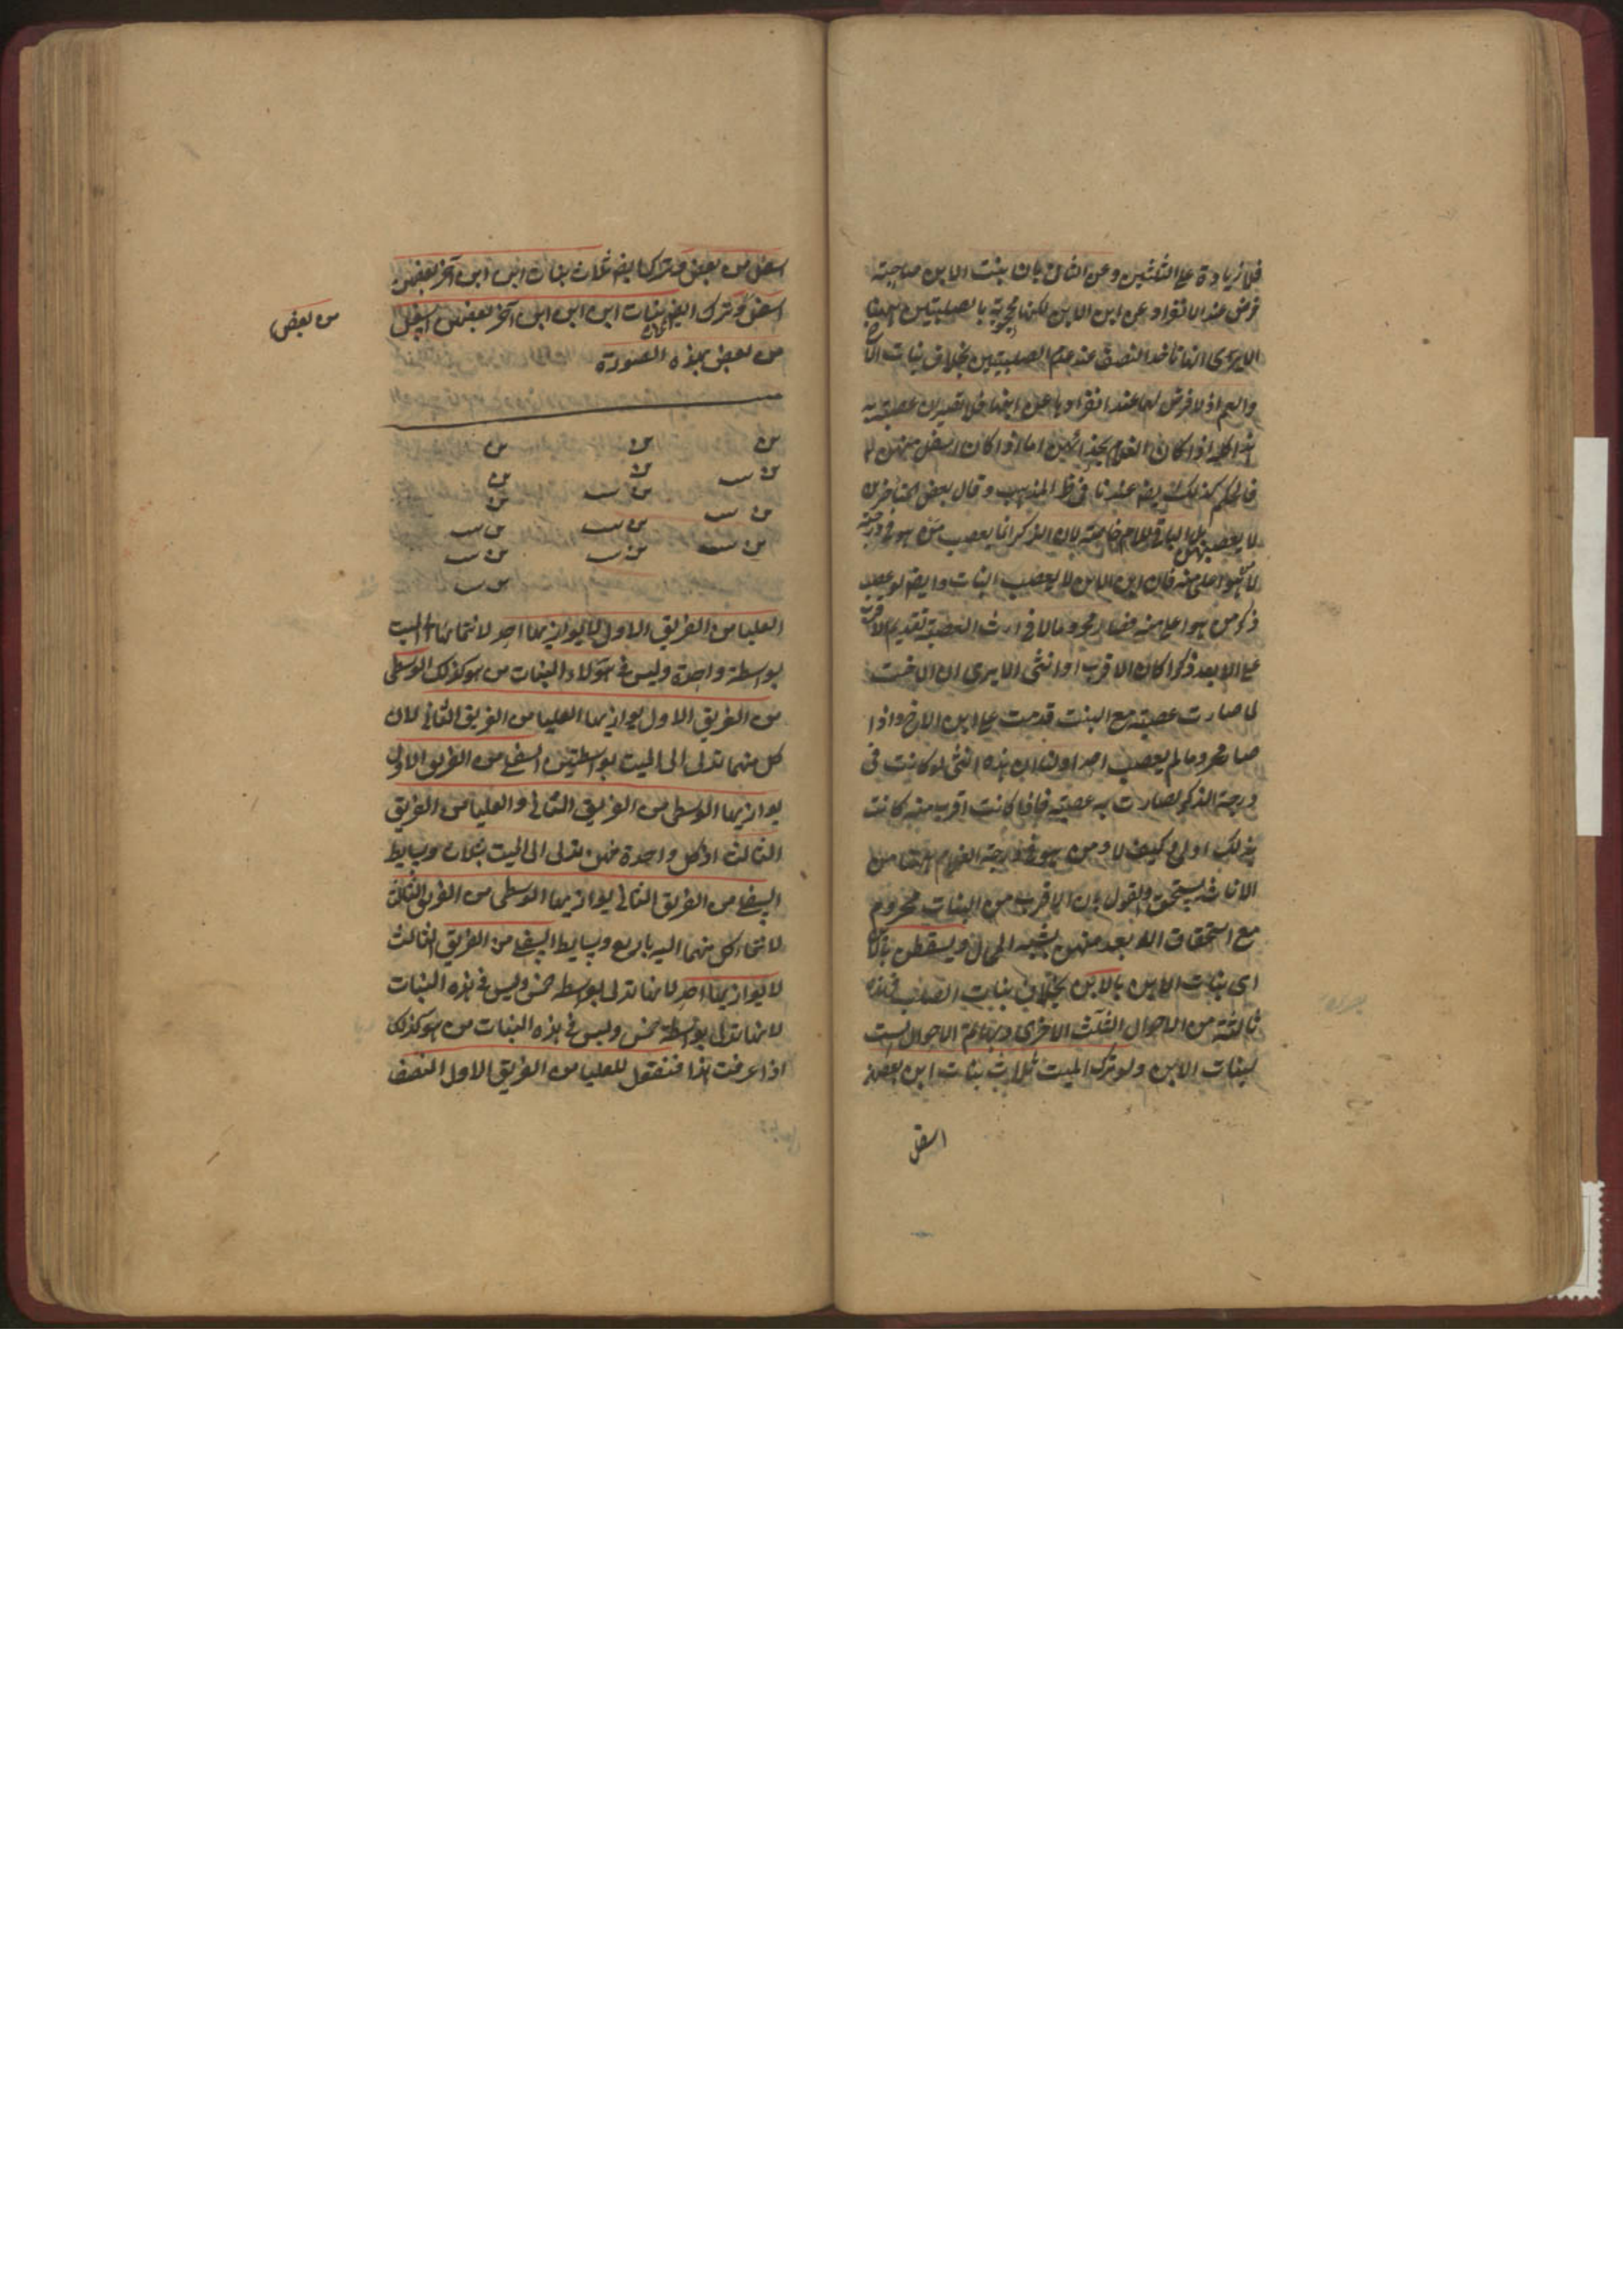 فلا زيادة على الثلثين وعن الثانى بان بنت الابن صاحبة
فرض عند الانفراد عن ابن الابن لكنها محجوبة بالصلبيتين ههنا
الا يرى انها تاخذ النصف عند عدم الصلبيتين بخلاف بنات الاخ
والعم اذ لا فرض لهما عند انفرادها عن ابنها فلا تصيران عصبة به
هذا كله اذا كان الغلام بحذائهن اما اذا كان اسفل منهن
فالحكم كذلك ايضا عندنا فى ظ المذهب وقال بعض المتاخرين
لا يعصبهن بل الباقى للغلام خاصة لان الذكر انما يعصب من هو فى درجته
لا من هو اعلى منه فان ابن الابن لا يعصب البنات وايضا لو عصب
ذكر من هو اعلى منه فصار محروما لان فى ارث العصبة تقديم الاقرب
على الابعد ذكرا كان الاقرب او انثى الا يرى ان الاخت
لما صارت عصبة مع البنت قدمت على ابن الاخ واذا
صار محروما لم يعصب احدا ولنا ان هذه انثى لو كانت فى
درجة الذكر لصارت به عصبة فاذا كانت اقرب منه كانت
بذلك اولى وكيف لا ومن هو فى درجة الغلام ههنا من
الاناث يستحق والقول بان الاقرب من البنات محروم
مع استحقاق الابعد منهن يشبه المحال ويسقطن
اى بنات الابن بالابن بخلاف بنات الصلب فهذه
ثالثة من الاحوال الثلث الاخرى وبها تتم الاحوال الست
لبنات الابن ولو ترك الميت ثلاث بنات ابن بعضهن
اسفل
اسفل من بعض وترك ايضا ثلاث بنات ابن ابن آخر بعضهن
اسفل وترك ايضا ثلاث بنات ابن ابن ابن آخر بعضهن اسفل
من بعض
من بعض بهذه الصورة
العليا من الفريق الاول لا يوازيها احد لانتمائها الى الميت
بواسطة واحدة وليس فى هؤلاء البنات من هو كذلك الوسطى
من الفريق الاول يوازيها العليا من الفريق الثانى لان
كل منهما تدلى الى الميت بواسطتين السفلى من الفريق الاول
يوازيها الوسطى من الفريق الثانى والعليا من الفريق
الثالث اذ كل واحدة منهن تدلى الى الميت بثلاث وسايط
السفلى من الفريق الثانى يوازيها الوسطى من الفريق الثالث
لانتماء كل منهما اليه باربع وسايط السفلى من الفريق الثالث
لا يوازيها احد لانها تدلى بواسطه خمس وليس فى هذه البنات
لانها تدلى بواسطة خمس وليس فى هذه البنات من هو كذلك
اذا عرفت هذا فنقول للعليا من الفريق الاول النصف